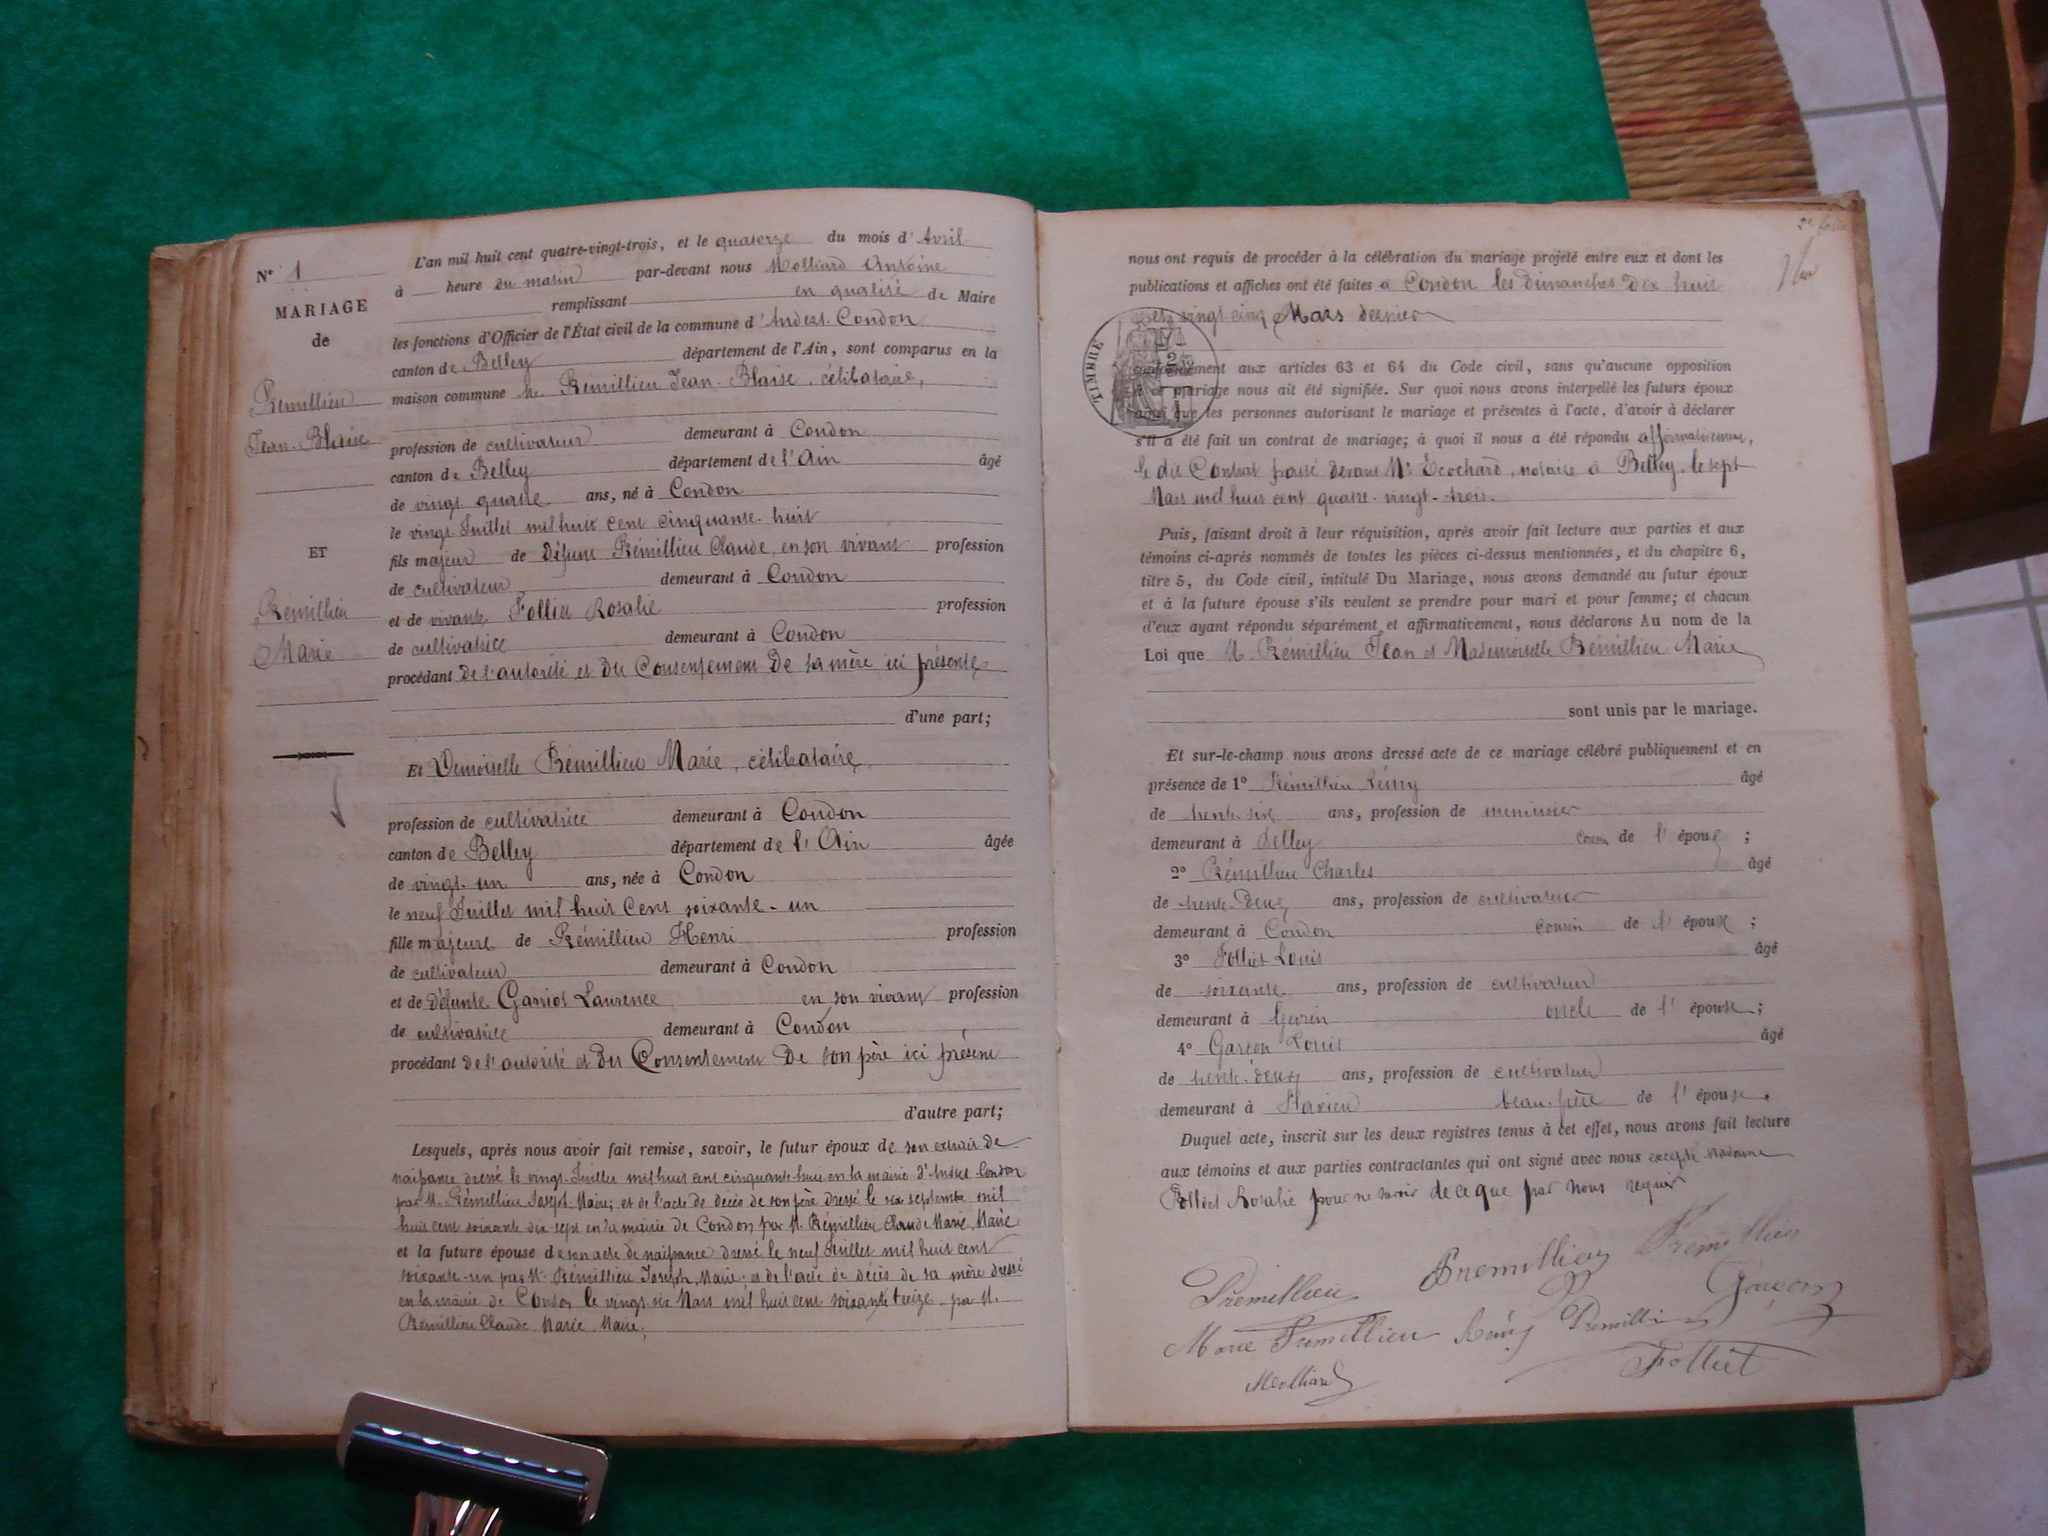 N° 1
MARIAGE
de
Rémillieu
Jean-Blaise
ET
Rémillieu
Marie
L'an mil huit cent quatre-vingt-trois, et le quatorze du mois d'Avril
à heure du matin par-devant nous Molliard Antoine
remplissant en qualité de Maire
les fonctions d'Officier de l'État civil de la commune d'Andert-Condon
canton de Belley département de l'Ain, sont comparus en la
maison commune M. Rémillieu Jean-Blaise, célibataire,
profession de cultivateur demeurant à Condon
canton de Belley département de l'Ain âgé
de vingt quatre ans, né à Condon
le vingt Juillet mil huit cent cinquante-huit
fils majeur de Défunt Rémillieu Claude, en son vivant profession
de cultivateur demeurant à Condon
et de vivante Folliet Rosalie profession
de cultivatrice demeurant à Condon
procédant de l'autorité et du Consentement de sa mère ici présente
d'une part;
Et Demoiselle Rémillieu Marie, célibataire,
profession de cultivatrice demeurant à Condon
canton de Belley département de l'Ain âgée
de vingt-un ans, née à Condon
le neuf Juillet mil huit cent soixante-un
fille majeure de Rémillieu Henri profession
de cultivateur demeurant à Condon
et de Défunte Garriot Laurence en son vivant profession
de cultivatrice demeurant à Condon
procédant de l'autorité et du Consentement de son père ici présent
d'autre part;
Lesquels, après nous avoir fait remise, savoir, le futur époux de son extrait de
naissance dressé le vingt Juillet mil huit cent cinquante-huit en la mairie d'Andert-Condon
par M. Rémillieu Joseph, Maire; et de l'acte de décès de son père dressé le six septembre mil
huit cent soixante dix-sept en la mairie de Condon par M. Rémillieu Claude Marie, Maire
et la future épouse de son acte de naissance dressé le neuf Juillet mil huit cent
soixante-un par M. Rémillieu Joseph, Maire; et de l'acte de décès de sa mère dressé
en la mairie de Condon le vingt-six Mars mil huit cent soixante treize par M.
Rémillieu Claude Marie, Maire,
nous ont requis de procéder à la célébration du mariage projeté entre eux et dont les
publications et affiches ont été faites à Condon les dimanches dix huit
et vingt cinq Mars dernier
TIMBRE
conformément aux articles 63 et 64 du Code civil, sans qu'aucune opposition
à ce mariage nous ait été signifiée. Sur quoi nous avons interpellé les futurs époux
ainsi que les personnes autorisant le mariage et présentes à l'acte, d'avoir à déclarer
s'il a été fait un contrat de mariage; à quoi il nous a été répondu affirmativement,
le dit Contrat passé devant Me Ecochard, notaire à Belley, le sept
Mars mil huit cent quatre-vingt-trois.
Puis, faisant droit à leur réquisition, après avoir fait lecture aux parties et aux
témoins ci-après nommés de toutes les pièces ci-dessus mentionnées, et du chapitre 6,
titre 5, du Code civil, intitulé Du Mariage, nous avons demandé au futur époux
et à la future épouse s'ils veulent se prendre pour mari et pour femme; et chacun
d'eux ayant répondu séparément et affirmativement, nous déclarons Au nom de la
Loi que M. Rémillieu Jean et Mademoiselle Rémillieu Marie
sont unis par le mariage.
Et sur-le-champ nous avons dressé acte de ce mariage célébré publiquement et en
présence de 1° Rémillieu Rémy âgé
de trente-six ans, profession de menuisier
demeurant à Belley cousin de l'époux ;
2° Rémillieu Charles âgé
de trente-deux ans, profession de cultivateur
demeurant à Condon cousin de l'époux ;
3° Folliet Louis âgé
de soixante ans, profession de cultivateur
demeurant à oncle de l'épouse ;
4° Garçon Louis âgé
de trente-deux ans, profession de cultivateur
demeurant à Flaxieu beau-frère de l'épouse.
Duquel acte, inscrit sur les deux registres tenus à cet effet, nous avons fait lecture
aux témoins et aux parties contractantes qui ont signé avec nous excepté Madame
Folliet Rosalie pour ne savoir de ce que par nous requis
Rémillieu Rémillieu Rémillieu
Garçon
Marie Rémillieu Rémy Rémillieu
Folliet
Molliard